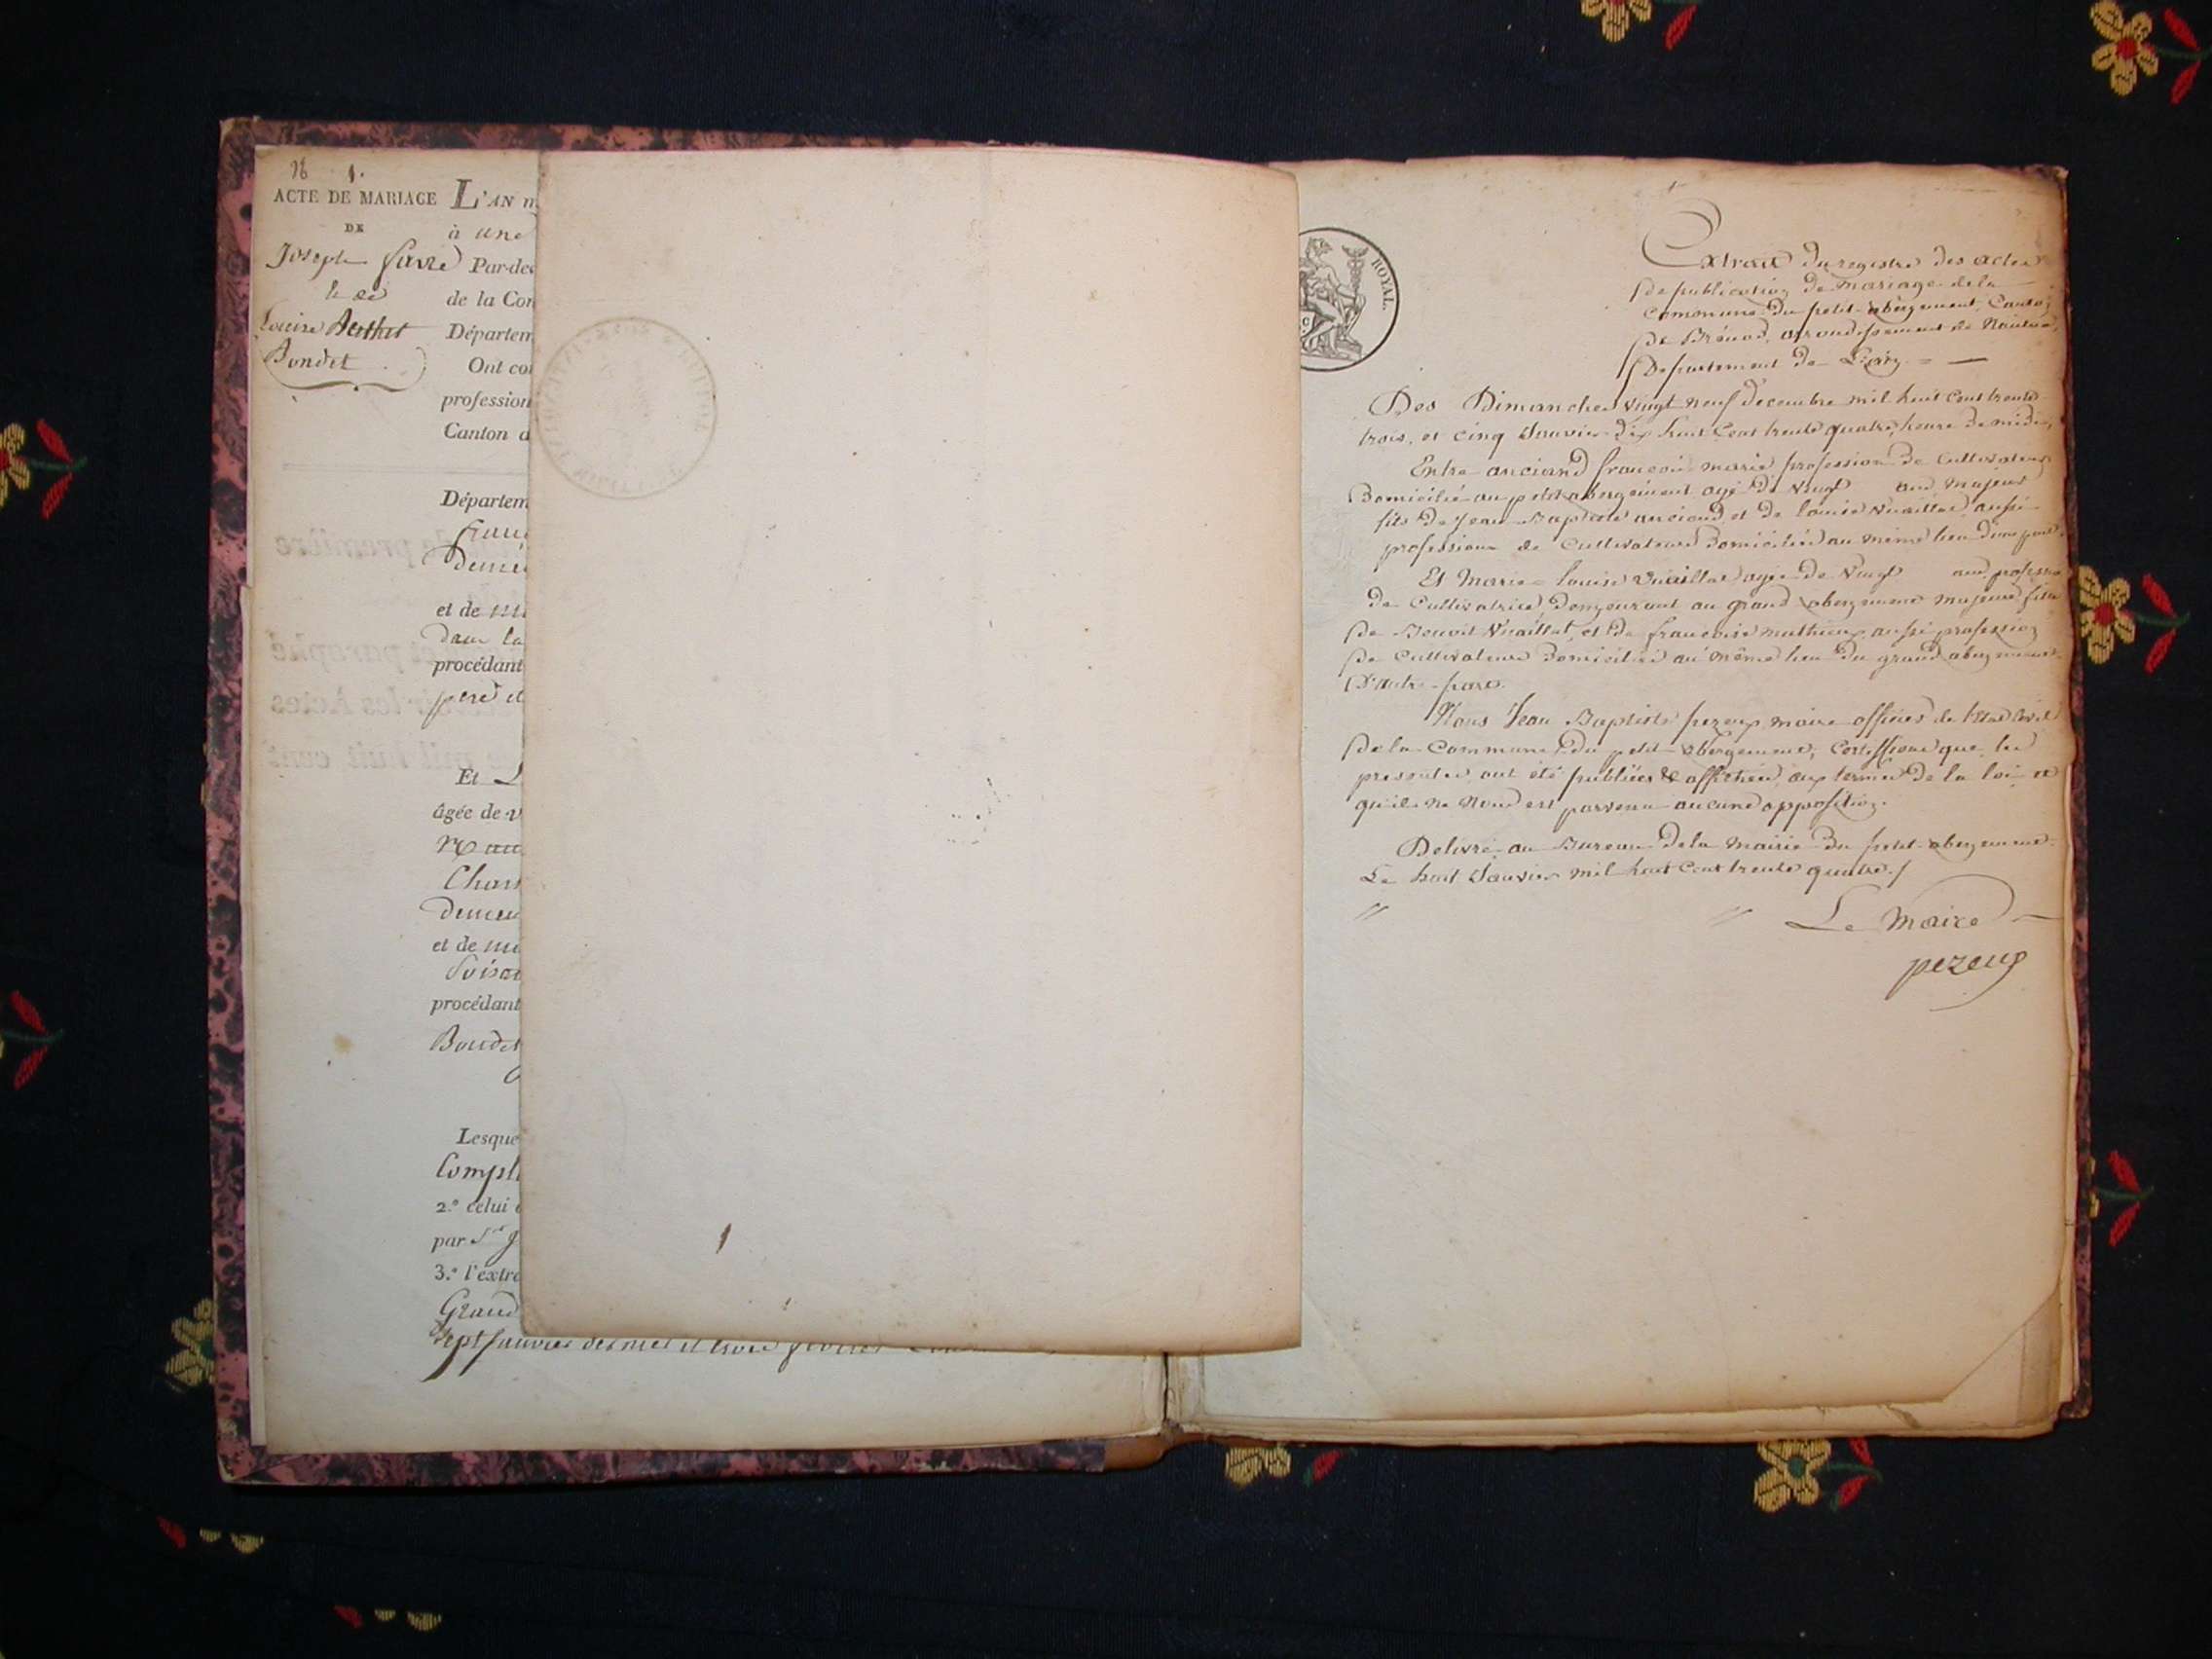 98 1.
ACTE DE MARIAGE
DE
Joseph favre
& de
Louise Berthet
Bondet
L'AN
à une
Par-de
de la Co
Départem
Ont co
profession
Canton
Départem
et de
procédant
pere et
Et
âgée de
demeu
et de
procédant
Boudet
Lesque
Compl
2.° celui
par Sr
3.° l'extr
Grand
Sept Janvier dernier et trois février
ROYAL.
Extrait du registre des actes
de publication de mariage de la
commune du petit abergement, Canton
de Brénod, arrondissement de Nantua,
Département de L'ain =
Des Dimanches vingt neuf decembre mil huit cent trente
trois, et cinq Janvier dix huit cent trente quatre, heure de midi,
Entre anciand françois marie profession de Cultivateur
Domicilié au petit abergement agé de vingt ans majeur
fils de Jean Baptiste anciand et de louise Vuaillat aussi
profession de Cultivateurs Domiciliés au même lieu d'une part.
Et Marie Louise Vuaillat agée de vingt ans profession
de Cultivatrice, demeurant au grand abergement majeure fille
de Benoit Vuaillat, et de françoise mathieux aussi profession
de Cultivateurs Domiciliés au même lieu du grand abergement
D'autre part.
Nous Jean Baptiste pezeux maire officier de l'Etat Civil
de la Commune du petit abergement, Certifions que les
presentes ont été publiées & affichées aux termes de la loi et
qu'il ne nous est parvenu aucune opposition.
Delivré au Bureau de la Mairie du petit abergement
Le huit Janvier mil huit cent trente quatre./
Le Maire
pezeux